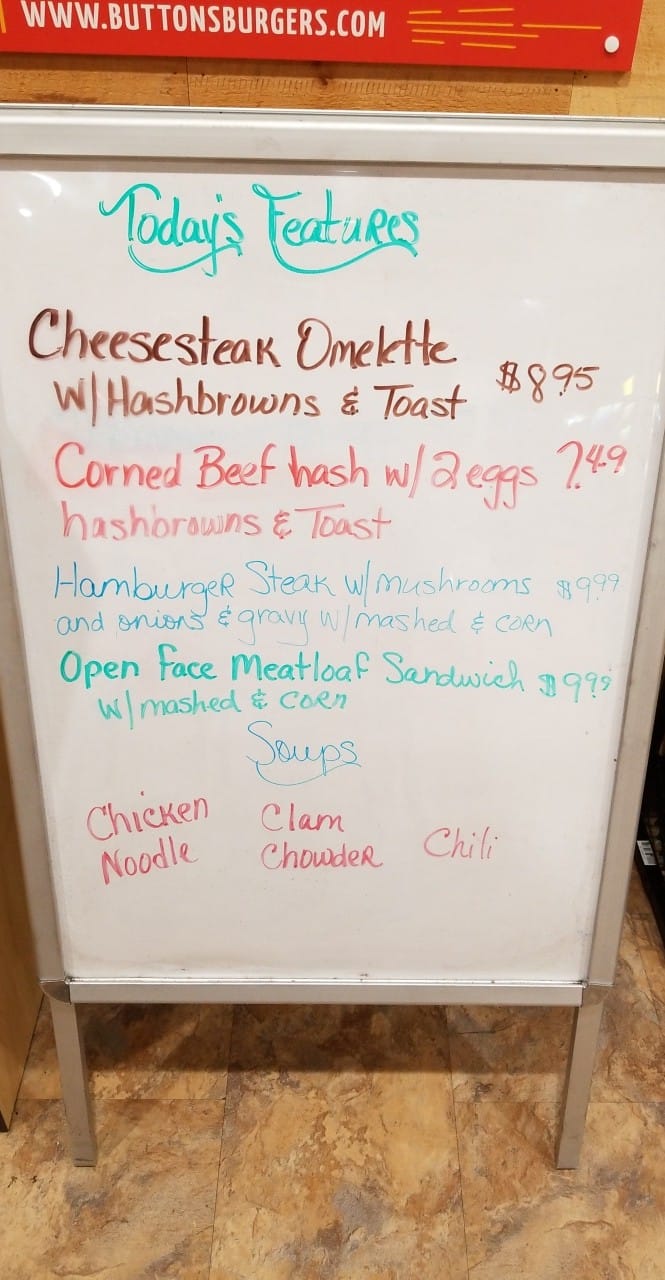 WWW.BUTTONSBURGERS.COM
Today's Features
Cheesesteak Omelette $8.95
W/Hashbrowns & Toast
Corned Beef hash w/2 eggs 7.49
hashbrowns & Toast
Hamburger Steak w/mushrooms $9.99
and onions & gravy w/mashed & corn
Open Face Meatloaf Sandwich $9.99
w/mashed & corn
Soups
Chicken Noodle
Clam Chowder
Chili